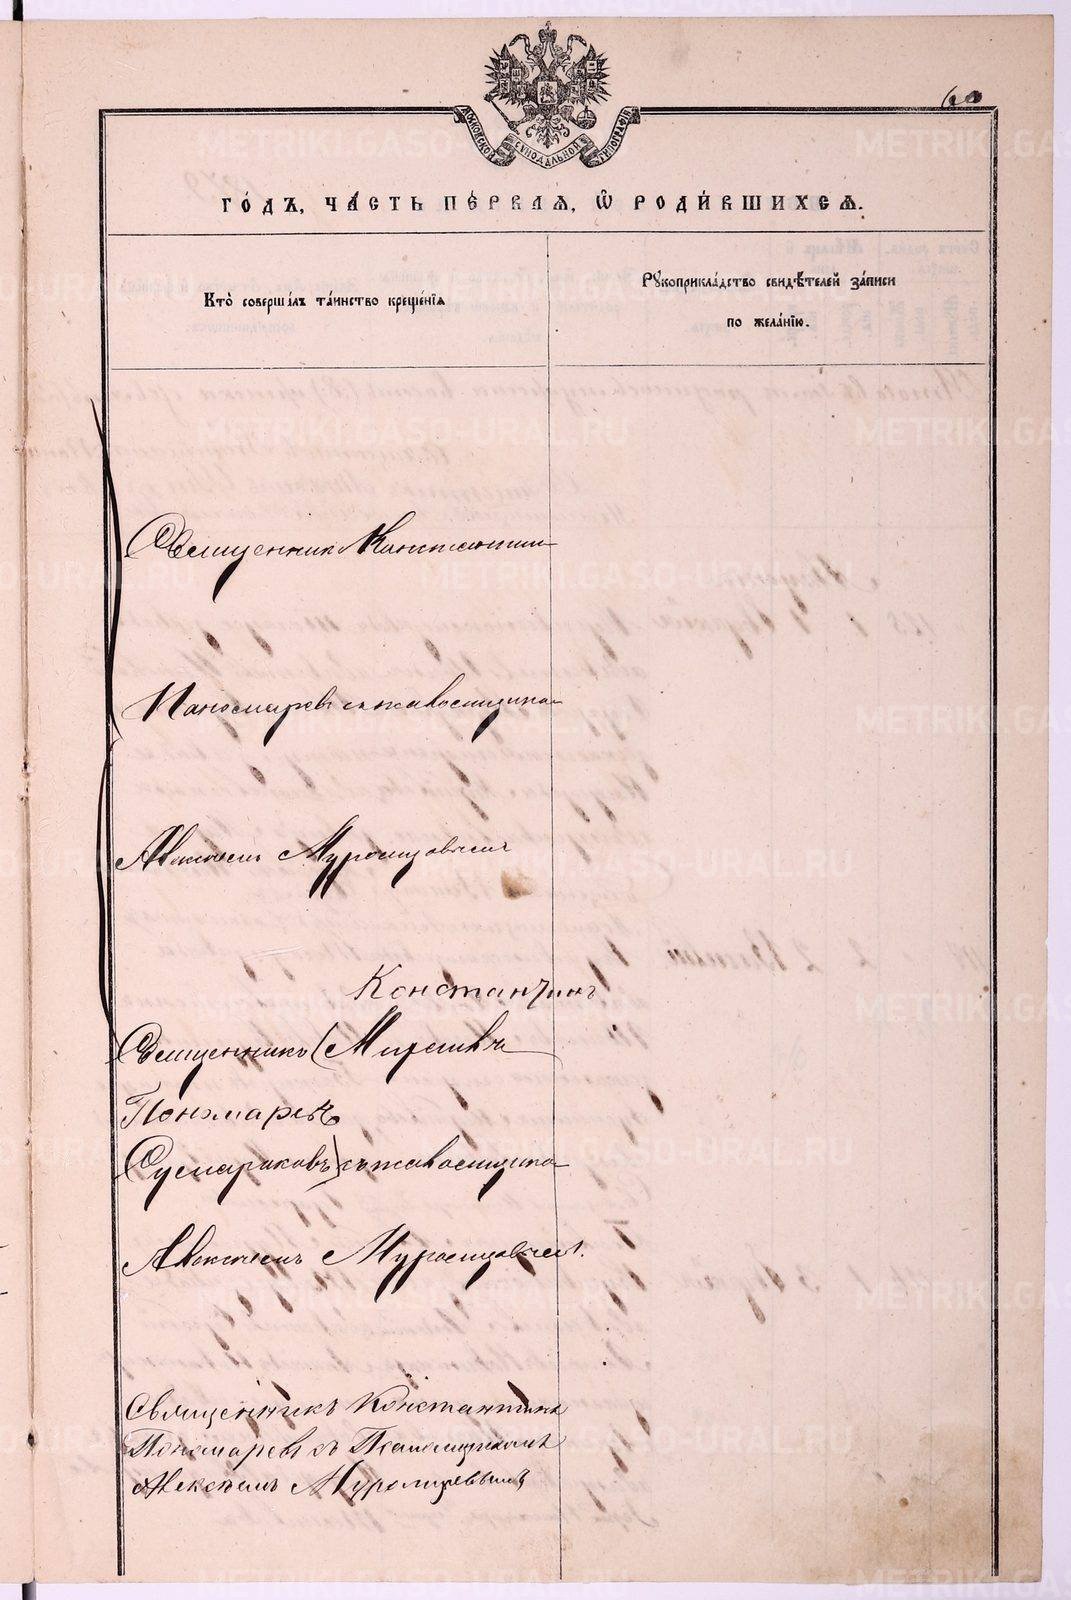 60
МОСКОВСКОЙ СѴНОДАЛЬНОЙ ТИПОГРАФІИ
ГО́ДЪ, ЧА́СТЬ ПЕ́РВАѦ, Ѡ҆ РОДИ́ВШИХСѦ.
Кто̀ соверша́лъ та́инство креще́нїѧ
Рꙋкоприкла́дство свидѣ́телей за́писи
по жела́нїю.
Священник Константин
Пономаревъ съ псаломщиком
Алексѣемъ Муромцовымъ
Константинъ
Священникъ (
Пономаревъ
) съ псаломщиком
Алексѣемъ Муромцовымъ.
Священникъ Константинъ
Пономаревъ съ Псаломщикомъ
Алексѣемъ Муромцевымъ
METRIKI.GASO-URAL.RU